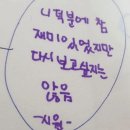 니 덕분에 참
재미있었지만
다시 보고싶지는
않음
-시원-